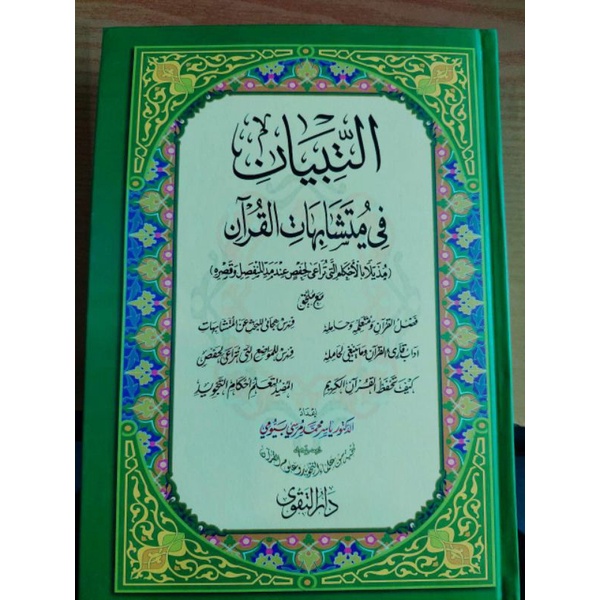 التِّبيَان
فِي مُتَشَابِهَاتِ القُرآن
(مُذَيَّلاً بِالأحكام التي تُراعى لحفص عند مد المنفصل وقصره)
مع ملحق
فضل القرآن ومتعلمه وحامله
فهرس هجائي للبحث عن المتشابهات
آداب قارئ القرآن وما ينبغي لحامله
فهرس للمواضع التي تراعى لحفص
كيف تحفظ القرآن الكريم
المفيد لتعلم أحكام التجويد
إعداد
الدكتور ياسر محمد مرسي بيومي
نخبة من علماء التجويد وعلوم القرآن
دار التقوى